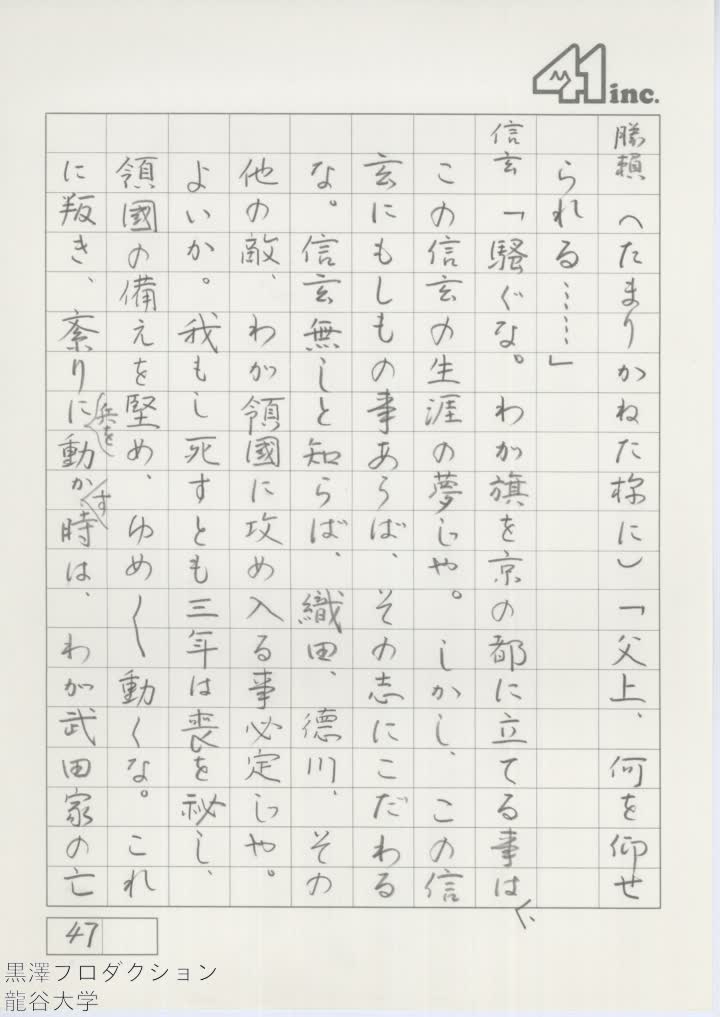 41 inc.
勝頼(たまりかねた様に)「父上、何を仰せ
られる……」
信玄「騒ぐな。わが旗を京の都に立てる事は、
この信玄の生涯の夢じや。しかし、この信
玄にもしもの事あらば、その志にこだわる
な。信玄無しと知らば、織田、徳川、その
他の敵、わが領國に攻め入る事必定じや。
よいか。我もし死すとも三年は喪を秘し、
領國の備えを堅め、ゆめ〱動くな。これ
に叛き、紊りに兵を動かす時は、わが武田家の亡
47
黒澤プロダクション
龍谷大学